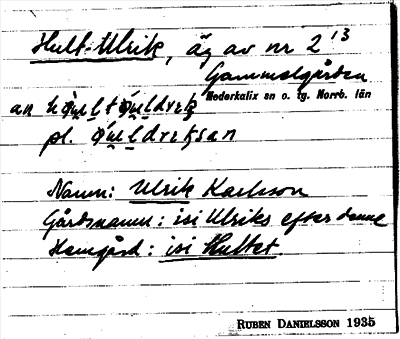 Hult-Ulrik, äg av nr 2¹³
Gammelgården
Nederkalix sn o. tg. Norrb. län
an
pl.
Namn: Ulrik Karlsson
Gårdsnamn: isi Ulriks efter denne
Hemgård: isi Hultet
RUBEN DANIELSSON 1935